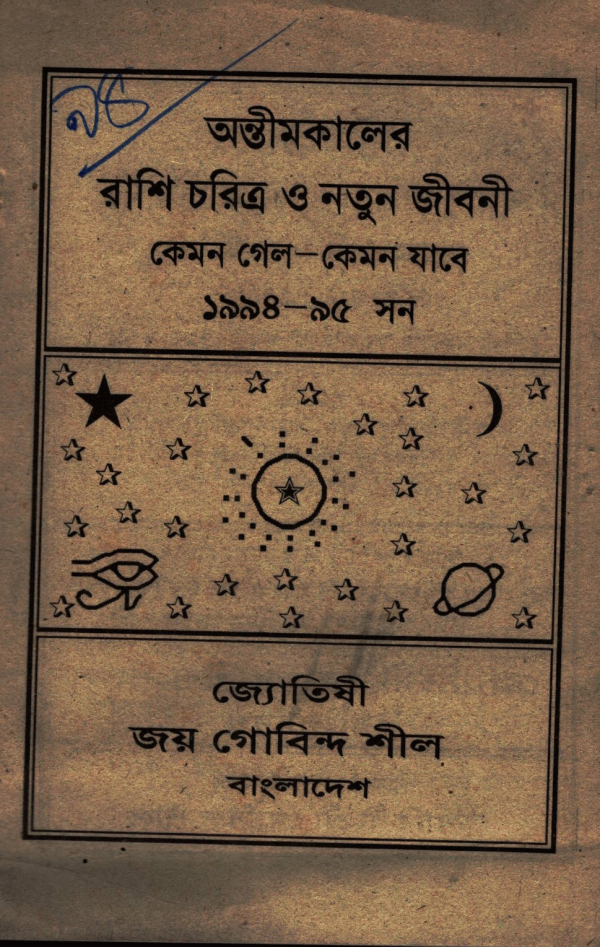 অন্তীমকালের
রাশি চরিত্র ও নতুন জীবনী
কেমন গেল—কেমন যাবে
১৯৯৪—৯৫ সন
জ্যোতিষী
জয় গোবিন্দ শীল
বাংলাদেশ